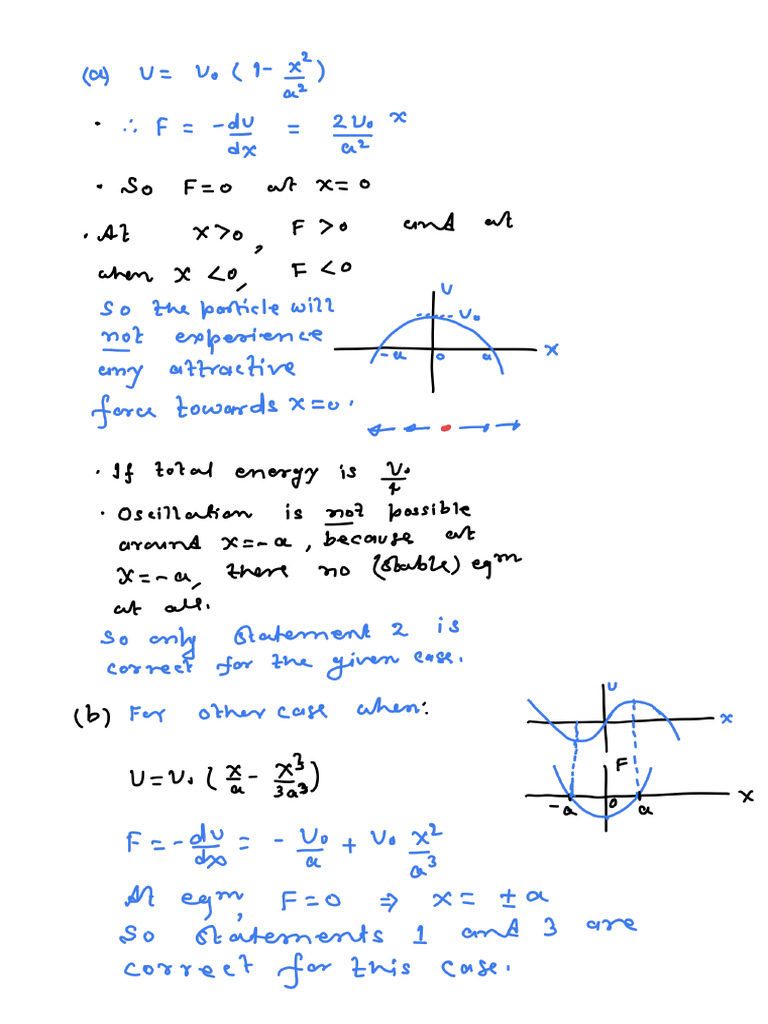 (a) U = U₀ (1 - x²/a²)
∴ F = -dU/dx = 2U₀/a² x
So F=0 at x=0
At x>0, F>0 and at
when x<0, F<0
So the particle will
not experience
any attractive
force towards x=0.
U
U₀
-a 0 a x
If total energy is U₀/4
Oscillation is not possible
around x=-a, because at
x=-a, there no (stable) eqm
at all.
So only statement 2 is
correct for the given case.
(b) For other case when:
U
x
F
-a 0 a x
U=U₀ (x/a - x³/3a³)
F = -dU/dx = - U₀/a + U₀ x²/a³
At eqm, F=0 ⇒ x = ±a
So statements 1 and 3 are
correct for this case.